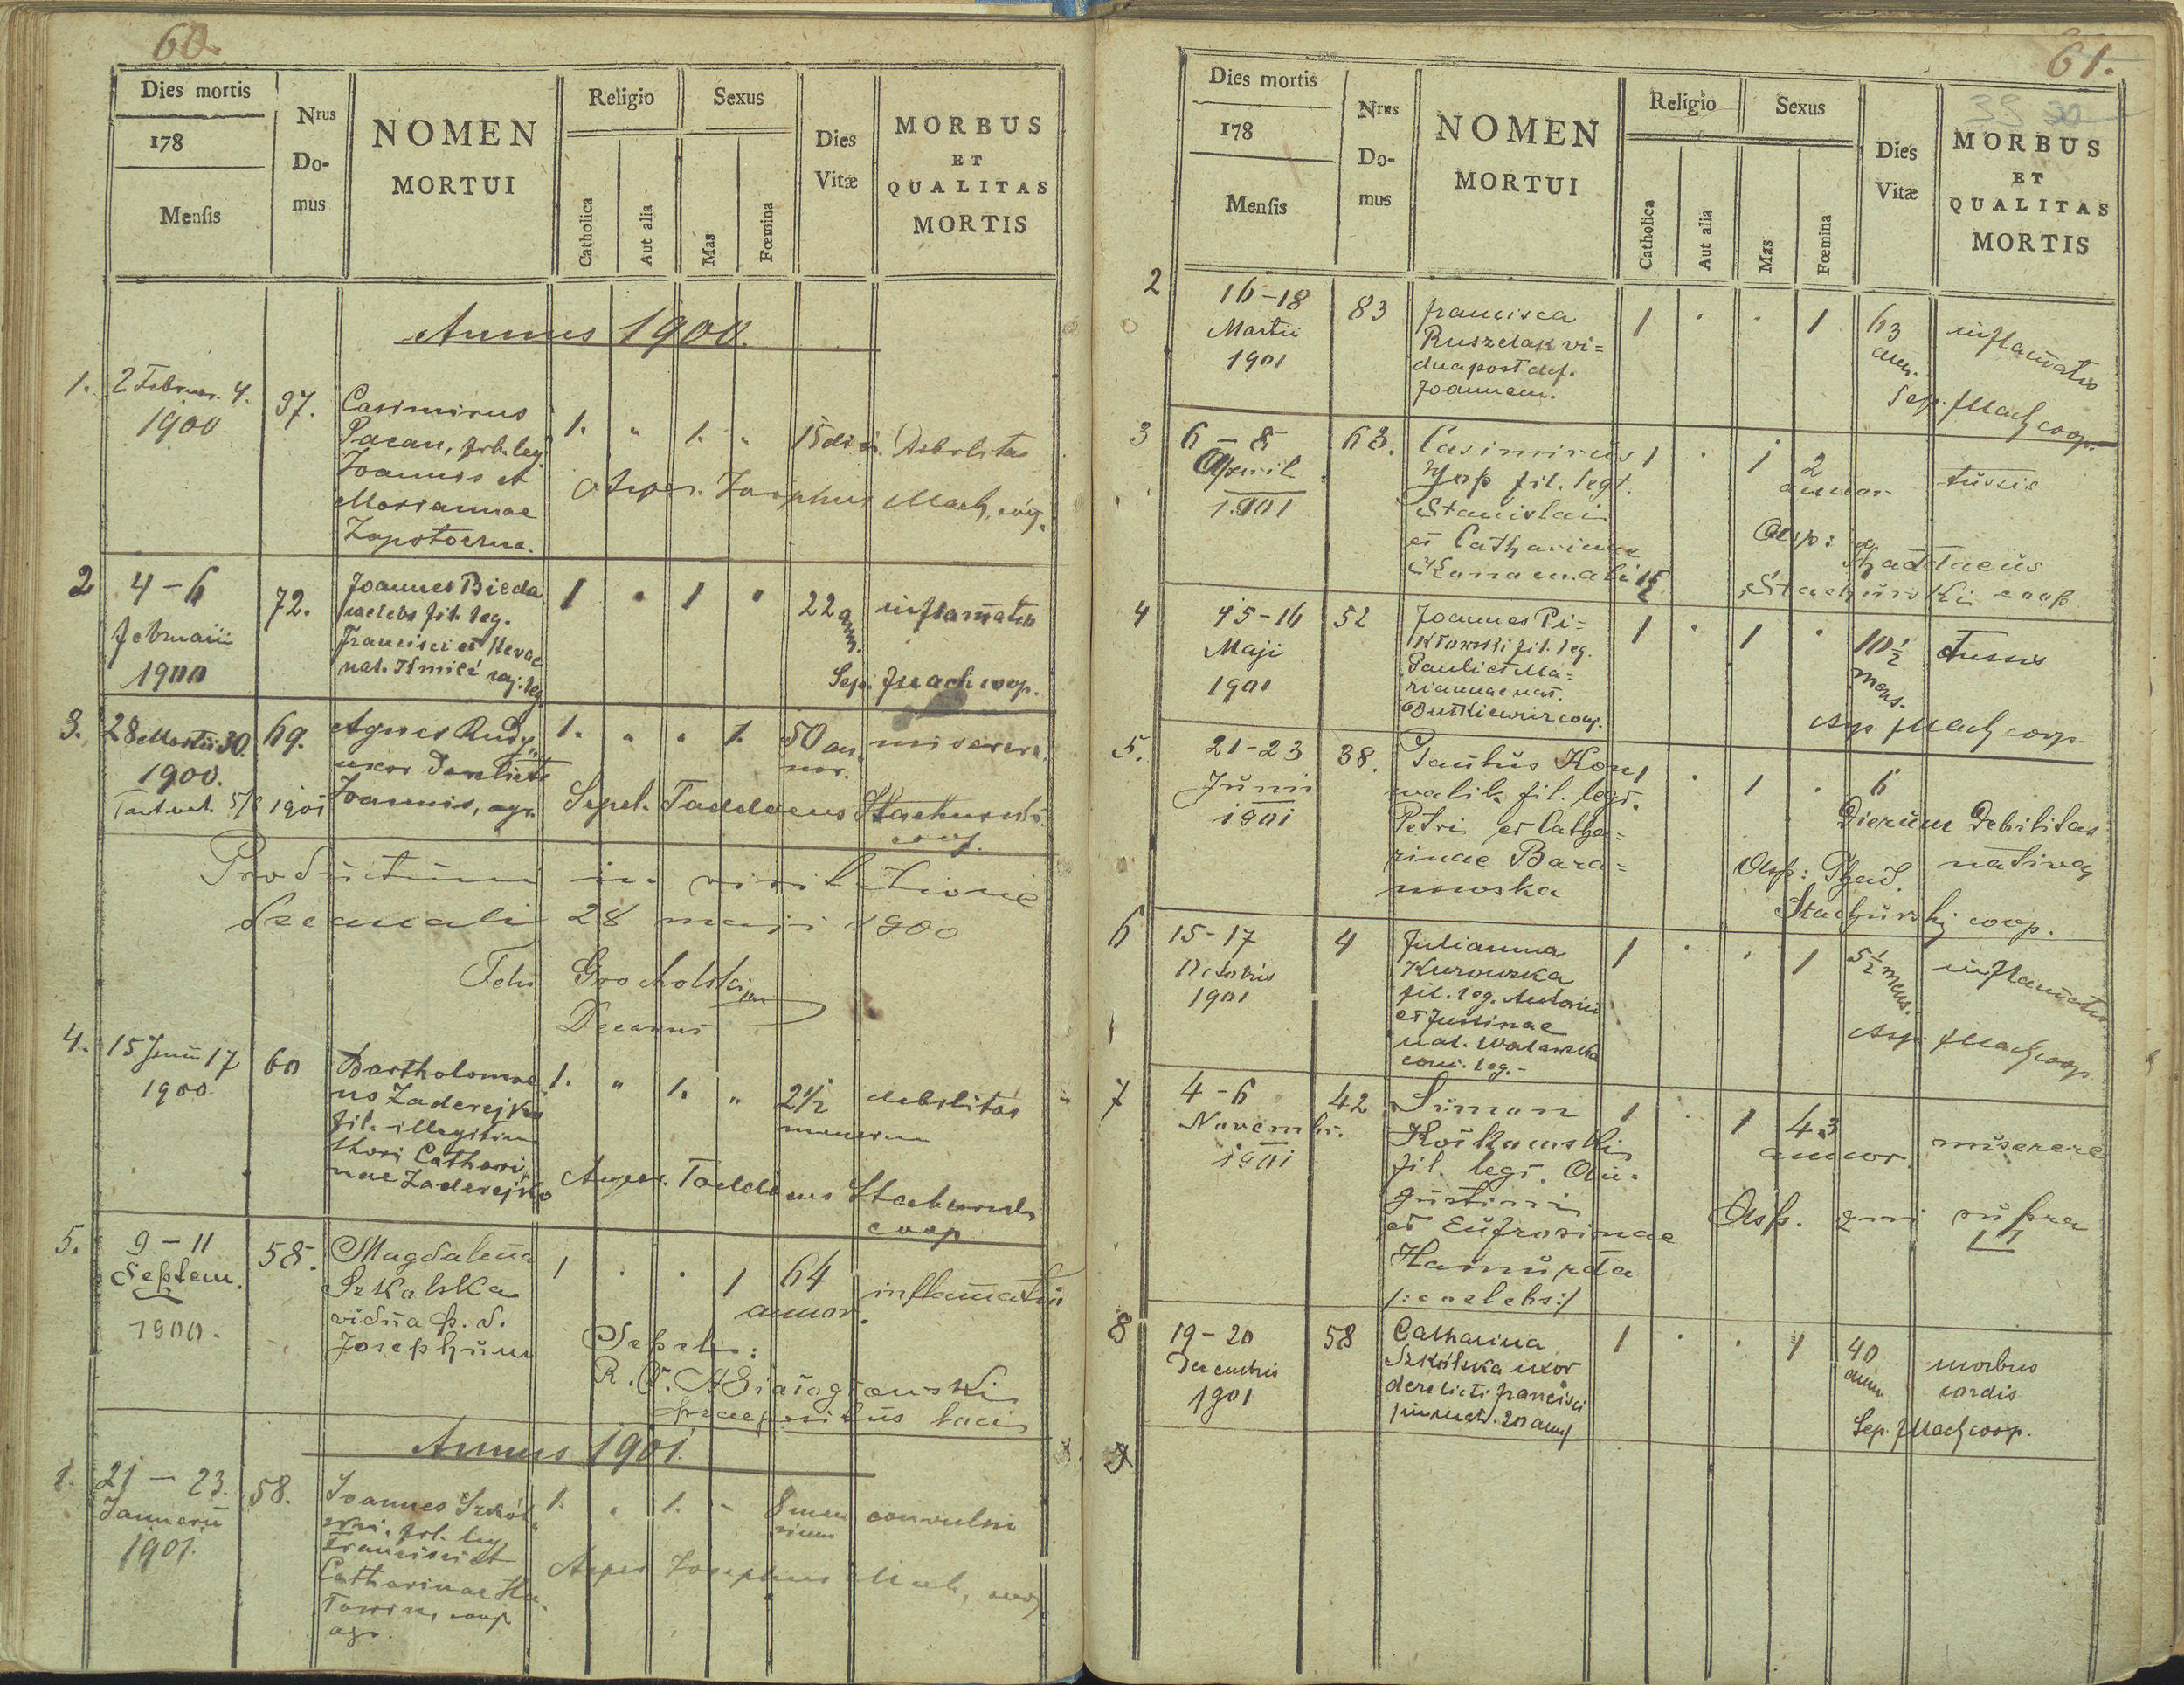 60.
Dies mortis
178
Mensis
Nrus
Do-
mus
NOMEN
MORTUI
Religio
Catholica
Aut alia
Sexus
Mas
Fœmina
Dies
Vitæ
MORBUS
ET
QUALITAS
MORTIS
Annus 1900.
1. 2 Februar. 4. 1900.
97.
Casimirus
Pacan, fil. leg.
Joannis et
Mariannae
1. " 1. "
15 dies
Debilitas
Asper. Josephus Mach, coop.
2 4-6
Februarii
1900
72.
Joannes Bieda
caelebs fil. leg.
Francisci et Hevae
nat. Kmieć conj. leg.
1 " 1 "
22 ann.
inflam̄atio
Sep. JMach coop.
3. 28 Martii 30.
1900.
69.
Agnes Rudy
uxor derelicta
Joannis, agr.
1. " " 1.
50 an
nor.
miserere
Sepel. Taddaeus Stachurski
coop.
1901
Productum in visitatione
decanali 28 maji 1900
Felix Grocholski
Decanus
4. 15 Junii 17
1900.
60
Bartholomae
us Zaderejko
fil. illegitimi
thori Cathari
nae Zaderejko
1. " 1. "
2 1/2
mensium
debilitas
Asper. Taddaeus Stachurski
coop
5. 9-11
Septem.
1900.
58.
Magdalena
Szkolska
vidua p. d.
Josephum
1 . . 1
64
annor.
inflam̄atio
Sepeli:
R. D. A Białogłowski
praepositus loci
Annus 1901.
1. 21-23.
Januarii
1901.
58.
Joannes Szkól
ski, fil. leg
Francisci et
Catharinae
coop
agr.
1. . 1. -
8 men
sium
convulsii
Asper Josephus Mach, coop
61.
Dies mortis
178
Mensis
Nrus
Do-
mus
NOMEN
MORTUI
Religio
Catholica
Aut alia
Sexus
Mas
Fœmina
Dies
Vitæ
39 30
MORBUS
ET
QUALITAS
MORTIS
2 16-18
Martii
1901
83
Francisca
Ruszelak vi=
dua post def.
Joannem.
1 . . 1
63
ann.
inflam̄atio
Sep. JMach coop.
3 6-8
April
1901
63.
Casimirus
fil. legt.
Stanislai
et Catharinae
1 . 1
2
annor
tussis
Asp: Thaddaeus
Stachurski coop
4 15-16
Maji
1901
52
Joannes Pi=
kłowski fil. leg.
Pauli et Ma=
riannae nat.
Butkiewicz conj.
1 . 1 .
10 1/2
mens.
tussis
Asp. JMach coop.
5. 21-23
Junii
1901
38.
Paulus Kow
walik fil. legt.
Petri et Catha=
rinae Bara=
nowska
1 . 1 .
6
Dierum
Debilitas
nativa
Asp: Thad.
Stachurski coop.
6 15-17
Octobris
1901
4
Julianna
Kurowska
fil. leg. Antonii
et Justinae
nat.
coni. leg.-
1 . . 1
5 1/2 mens.
inflam̄atio
Asp. JMach coop
7 4-6
Novembr.
1901
42
Simon
Koskowski
fil. legt. Au=
gustini
et Eufrosinae
Hamurda
/:coelebs:/
1 . 1
43
annor.
miserere
Asp. qui supra
8 19-20
Decembris
1901
58
Catharina
Szkólska uxor
derelicti Francisci
1 . . 1
40
ann.
morbus
cordis
Sep. JMach coop.
9